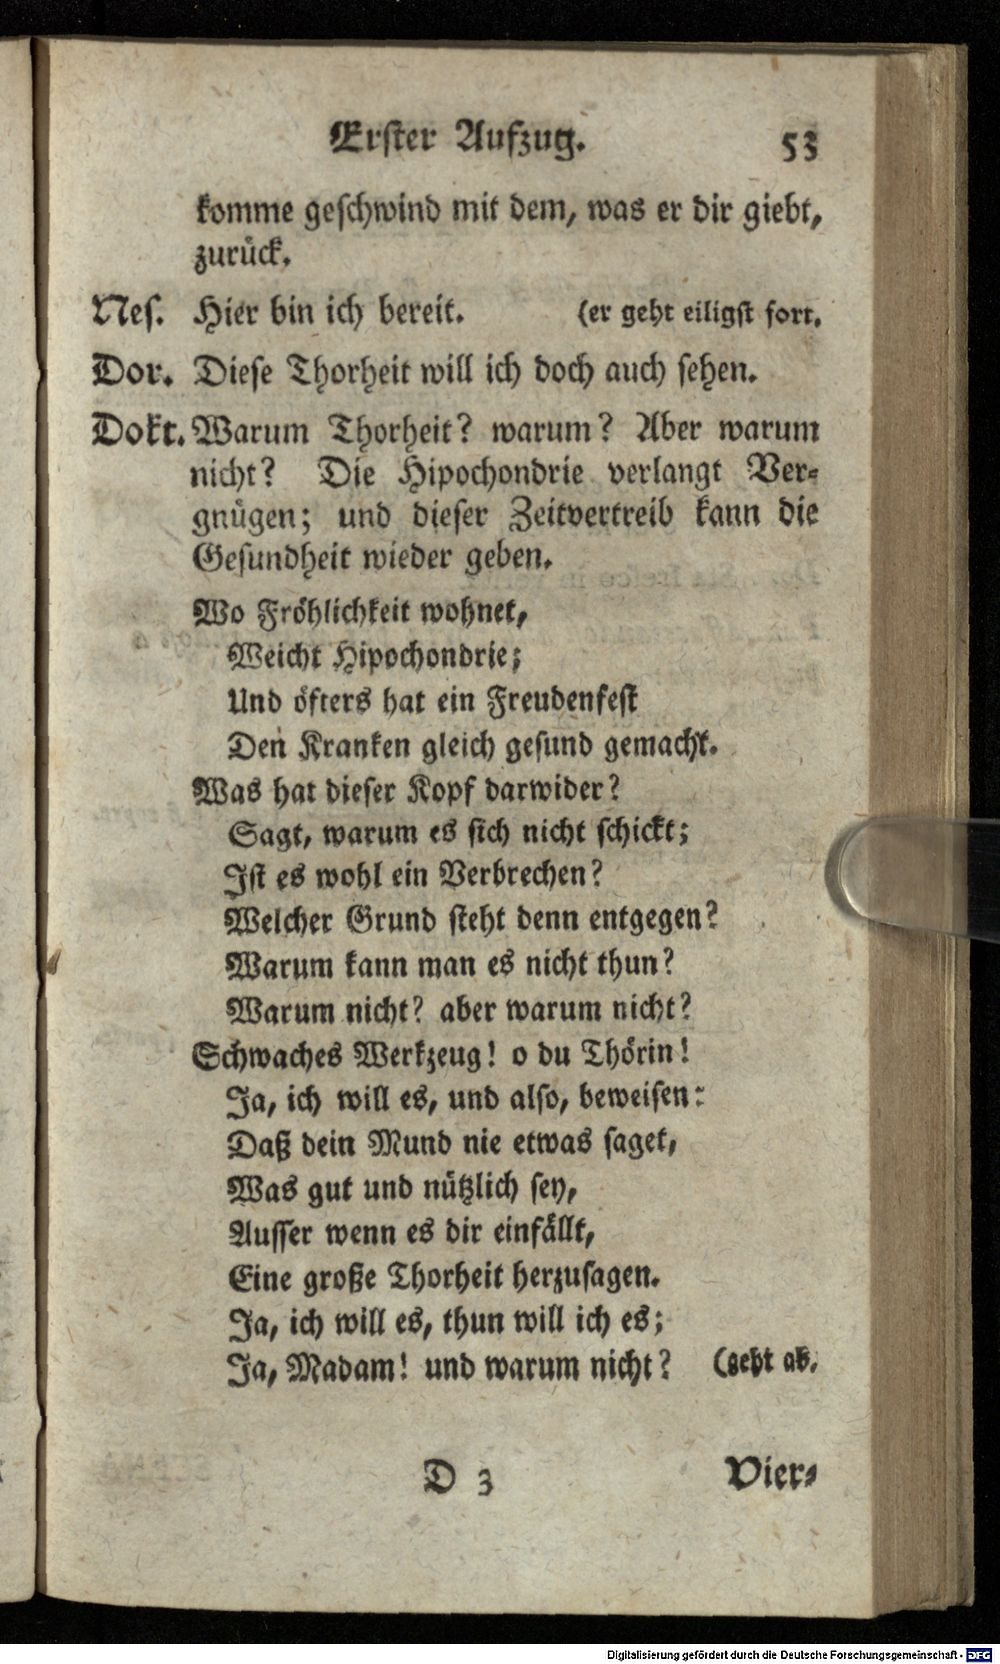 Erster Aufzug. 53
komme geschwind mit dem, was er dir giebt,
zurück.
Nes. Hier bin ich bereit. (er geht eiligst fort.
Dor. Diese Thorheit will ich doch auch sehen.
Dokt. Warum Thorheit? warum? Aber warum
nicht? Die Hipochondrie verlangt Ver-
gnügen; und dieser Zeitvertreib kann die
Gesundheit wieder geben.
Wo Fröhlichkeit wohnet,
Weicht Hipochondrie;
Und öfters hat ein Freudenfest
Den Kranken gleich gesund gemacht.
Was hat dieser Kopf darwider?
Sagt, warum es sich nicht schickt;
Ist es wohl ein Verbrechen?
Welcher Grund steht denn entgegen?
Warum kann man es nicht thun?
Warum nicht? aber warum nicht?
Schwaches Werkzeug! o du Thörin!
Ja, ich will es, und also, beweisen:
Daß dein Mund nie etwas saget,
Was gut und nützlich sey,
Ausser wenn es dir einfällt,
Eine große Thorheit herzusagen.
Ja, ich will es, thun will ich es;
Ja, Madam! und warum nicht? (geht ab.
D 3 Vier-
Digitalisierung gefördert durch die Deutsche Forschungsgemeinschaft - DFG